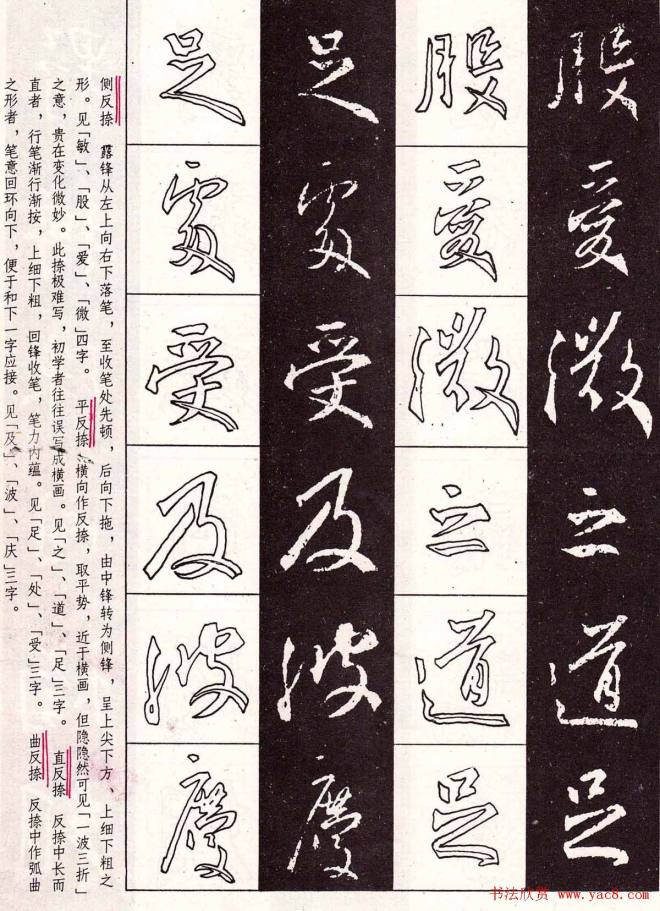 股愛微之道足
股愛微之道足
足處受及波慶
足處受及波慶
侧反捺 露锋从左上向右下落笔，至收笔处先顿，后向下拖，由中锋转为侧锋，呈上尖下方、上细下粗之
形。见「敏」、「股」、「爱」、「微」四字。 平反捺 横向作反捺，取平势，近于横画，但隐隐然可见「一波三折」
之意，贵在变化微妙。此捺极难写，初学者往往误写成横画。见「之」、「道」、「足」三字。 直反捺 反捺中长而
直者，行笔渐行渐按，上细下粗，回锋收笔，笔力内蕴。见「足」、「处」、「受」三字。 曲反捺 反捺中作弧曲
之形者，笔意回环向下，便于和下一字应接。见「及」、「波」、「庆」三字。
书法欣赏 www.yac8.com